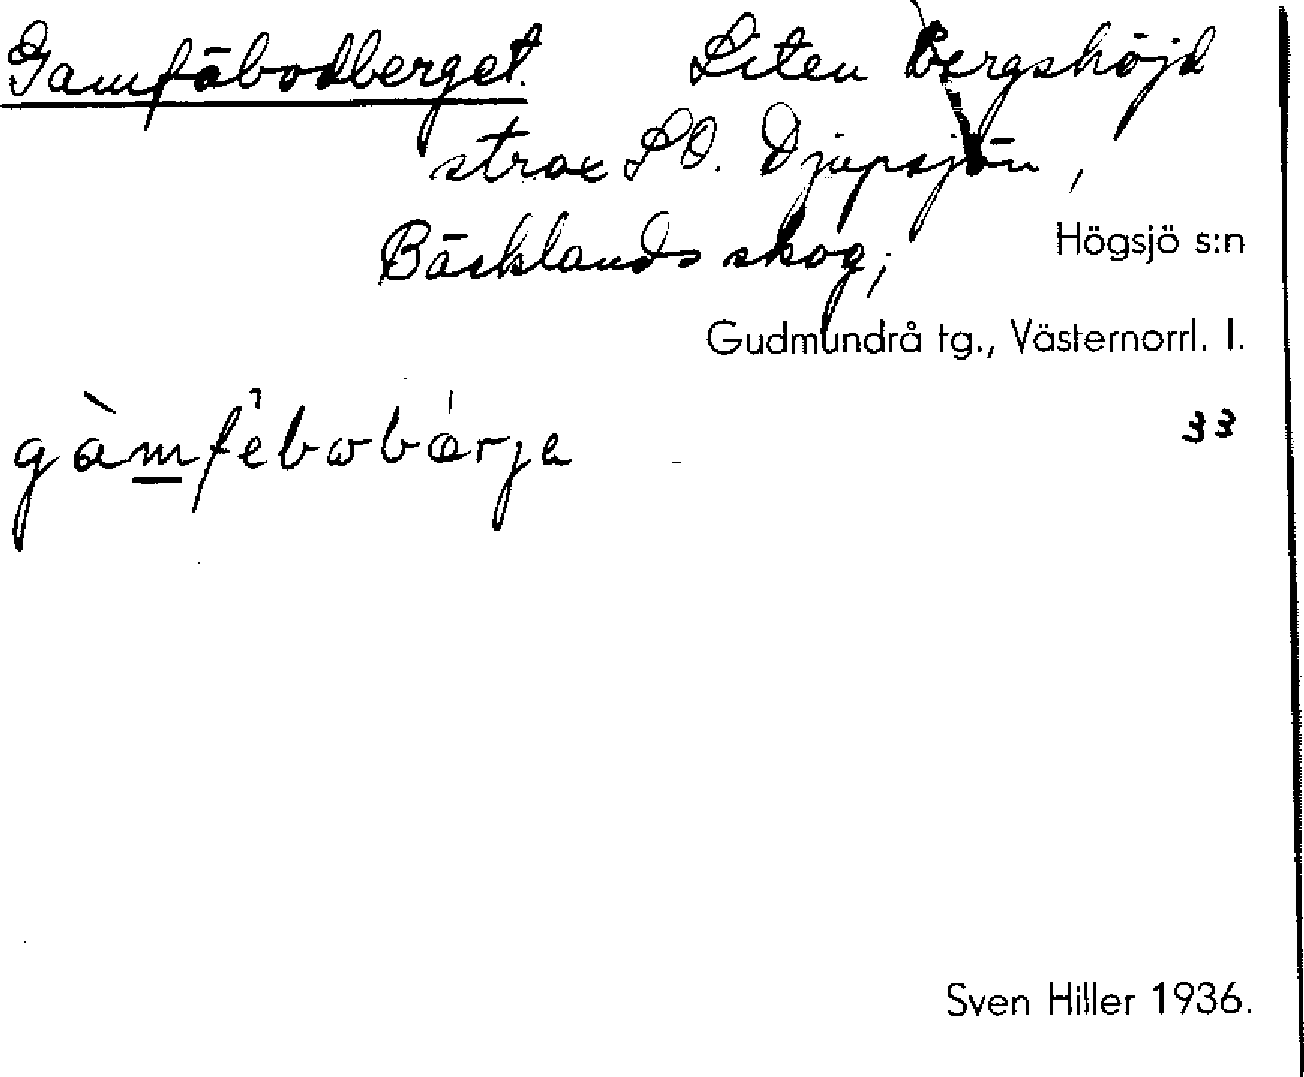 Gamfäbodberget. Liten Bergshöjd
strax SO. Djupsjön,
Bäcklands skog, Högsjö s:n
Gudmundrå tg., Västernorrl. l.
33
gàmfèbobárje
Sven Hiller 1936.